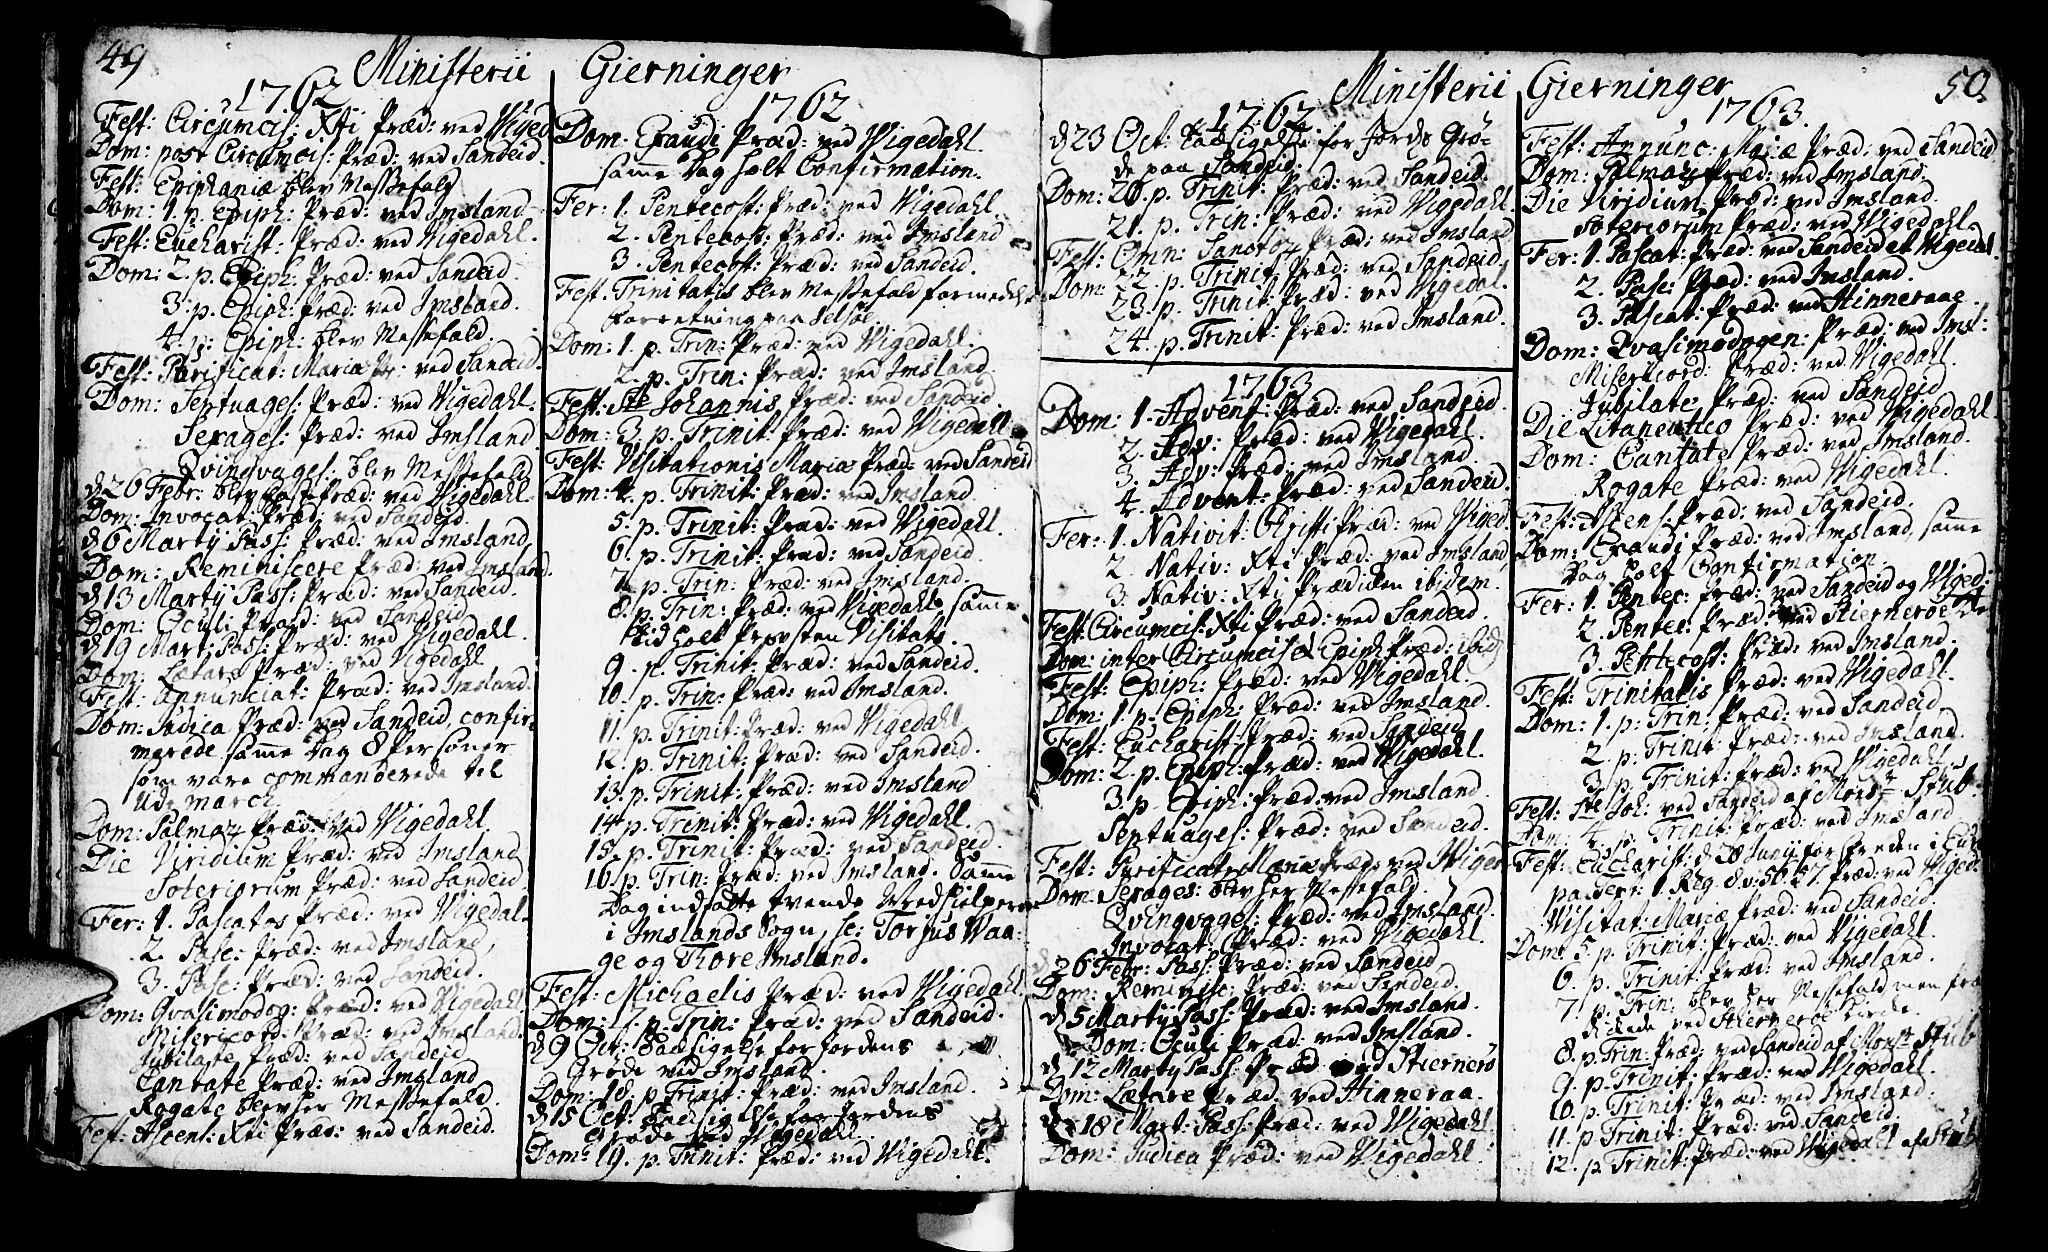 49
Ministerii Gierninger
1762
Fest: Circumcis: Xti Præd: ved Viged
Dom: post Circumcis: Præd: ved Sandeid.
Fest: Epiphaniæ blev Messefald
Dom: 1. p. Epiph: Præd: ved Imsland
Fest: Eucharist: Præd: ved Vigedahl.
Dom: 2. p. Epiph: Præd: ved Sandeid
3. p. Epiph: Præd: ved Imsland.
4. p. Epiph: blev Messefald.
Fest: Purificat: Mariæ Pr: ved Sandeid.
Dom: Septuages: Præd: ved Vigedahl.
Sexages: Præd: ved Imsland
Qvinqvages: blev Messefald
d 26 Febr: blev Fastepræd: ved Vigedahl.
Dom: Invocat: Præd: ved Sandeid.
d 6 Martij Pass: Præd: ved Imsland
Dom: Reminiscere Præd: ved Imsland.
d 13 Martij Pass: Præd: ved Sandeid.
Dom: Oculi Præd: ved Sandeid
d 19 Mart: Pass: Præd: ved Vigedahl.
Dom: Lætare Præd: ved Vigedahl
Fest: Annunciat: Præd: ved Imsland.
Dom: Judica Præd: ved Sandeid, confir-
merede samme Dag 8 Personer
som vare commanderede til
Udmarch.
Dom: Palmar: Præd: ved Vigedahl
Die Viridium Præd: ved Imsland
Soteriorum Præd: ved Sandeid.
Fer: 1. Pascatos Præd: ved Vigedal.
2. Pasc: Præd: ved Imsland,
3. Pasc: Præd: ved Sandeid.
Dom: Qvasimodog: Præd: ved Vigedahl.
Misericord: Præd: ved Imsland.
Jubilate Præd: ved Sandeid
Cantate Præd: ved Imsland
Rogate blev her Messefald.
Fest: Ascens: Xti Præd: ved Sandeid.
1762
Dom: Exaudi Præd: ved Vigedahl.
samme Dag holt Confirmation.
Fer: 1. Pentecost: Præd: ved Vigedahl.
2. Pentecost: Præd: ved Imsland
3. Pentecost: Præd: ved Sandeid.
Fest. Trinitatis blev Messefald formedelst
Forretning paa Selsøe
Dom: 1. p. Trin: Præd: ved Vigedahl.
2. p. Trin: Præd: ved Imsland.
Fest: Ste Johannis Præd: ved Sandeid.
Dom: 3 p. Trinit: Præd: ved Vigedahl.
Fest: Visitationis Mariæ Præd: ved Sandeid
Dom: 4. p. Trinit: Præd: ved Imsland.
5. p. Trinit: Præd: ved Vigedahl.
6. p. Trinit: Præd: ved Sandeid.
7. p. Trin: Præd: ved Imsland.
8. p. Trin: Præd: ved Vigedahl, samme
tid holt Provsten Visitats.
9. p. Trinit: Præd: ved Sandeid.
10. p. Trin: Præd: ved Imsland.
11. p. Trinit: Præd: ved Vigedahl.
12. p. Trinit: Præd: ved Sandeid.
13. p. Trinit: Præd: ved Imsland
14 p. Trinit: Præd: ved Vigedahl.
15. p. Trinit: Præd: ved Sandeid.
16. p. Trin: Præd: ved Imsland. Samme
Dag indsatte tvende Medhielpere
i Imslands Sogn, sc: Torjus Vaa-
ge og Thore Imsland.
Fest: Michaelis Præd: ved Vigedahl.
Dom: 17. p. Trin: Præd: ved Sandeid.
d 9 Oct: Taksigelse for Jordens
Grøde ved Imsland.
Dom: 18. p. Trinit: Præd: ved Imsland.
d 15 Oct: Taksigelse for Jordens
Grøde ved Vigedahl.
Dom: 19. p. Trinit: Præd: ved Vigedahl.
Ministerii Gierninger
50.
1762
d 23 Oct: Taksigelse for Jords Grø-
de paa Sandeid.
Dom: 20. p. Trinit: Præd: ved Sandeid.
21. p. Trin: Præd: ved Vigedahl.
Fest: Omn: Sanctor: Præd: ved Imsland
Dom: 22. p. Trinit: Præd: ved Sandeid.
23. p. Trinit: Præd: ved Vigedal.
24. p. Trinit: Præd: ved Imsland.
1763
Dom: 1. Advent: Præd: ved Sandeid.
2. Adv: Præd: ved Vigedahl.
3. Adv: Præd: ved Imsland.
4. Advent: Præd: ved Sandeid.
Fer: 1. Nativit: Christi Præd: ved Viged.
2. Nativ: Xti Præd: ved Imsland,
3. Nativ: Xti Prædiken ibidem.
Fest: Circumcis: Xti Præd: ved Sandeid.
Dom: inter Circumcis: & Epiph: Præd: ibid
Fest: Epiph: Præd: ved Vigedahl.
Dom: 1. p. Epiph: Præd: ved Imsland.
Fest: Eucharist: Præd: ved Sandeid
Dom: 2. p. Epiph: Præd: ved Vigedahl.
3. p. Epiph: Præd: ved Imsland.
Septuages: Præd: ved Sandeid.
Fest: Purificat: Mariæ Præd: ved Viged
Dom: Sexages: blev her Messefald.
Qvinqvages: Præd: ved Imsland.
Invocat: Præd: ved Vigedahl.
d 26 Febr: Pass: Præd: ved Sandeid
Dom: Reminisc: Præd: ved Sandeid.
d 5 Martij Pass: Præd: ved Imsland.
Dom: Oculi Præd: ved Imsland.
d 12 Martij Pass: Præd: ved Stiernerö
Dom: Lætare Præd: ved Hinneraa.
d 18 Mart: Pass: Præd: ved Vigedahl
Dom: Judica Præd: ved Vigedahl.
1763.
Fest: Annunc: Mariæ Præd: ved Sandeid
Dom: Palmar: Præd: ved Imsland.
Die Viridium Præd: ved Imsland.
Soteriorum Præd: ved Vigedahl.
Fer: 1. Pascat: Præd: ved Sandeid et Vigedal.
2. Pasc: Præd: ved Imsland.
3. Pascat: Præd: ved Hinneraae.
Dom: Qvasimodogen: Præd: ved Imsl:
Misericord: Præd: ved Vigedahl.
Jubilate Præd: ved Sandeid
Die Litaneutico Præd: ved Vigedahl.
Dom: Cantate Præd: ved Imsland.
Rogate Præd: ved Vigedahl.
Fest: Ascens: Præd: ved Sandeid.
Dom: Exaudi Præd: ved Imsland, samme
Dag holt Confirmation.
Fer: 1. Pentec: Præd: ved Sandeid og Viged:
2. Pentec: Præd: ved Stierneröe
3. Pentecost: Præd: ved Imsland.
Fest: Trinitatis Præd: ved Vigedahl.
Dom: 1. p: Trin: Præd: ved Sandeid,
2. p. Trinit: Præd: ved Imsland.
3. p. Trinit: Præd: ved Vigedahl.
Fest: Ste Joh: ved Sandeid af Monsr Stub
Dom: 4. p. Trinit: Præd: ved Imsland
Fest: Eucharist: d 28 Junij for Freden i Eur
paa over 1. Reg. 8. v: 56. 57. Præd: ved Viged.
Visitat: Mariæ Præd: ved Sandeid.
Dom: 5. p. Trinit: Præd: ved Vigedahl.
6. p. Trinit: Præd: ved Imsland.
7. p. Trin: blev her Messefald men præ
dikede ved Stierneröe Kirke.
8. p. Trin: Præd: ved Sandeid af Monsr Stub
9. p. Trinit: Præd: ved Vigedahl.
10. p. Trinit: Præd: ved Imsland.
11. p Trinit: Præd: ved Sandeid.
12. p Trinit: Præd: ved Vigedahl af Stub